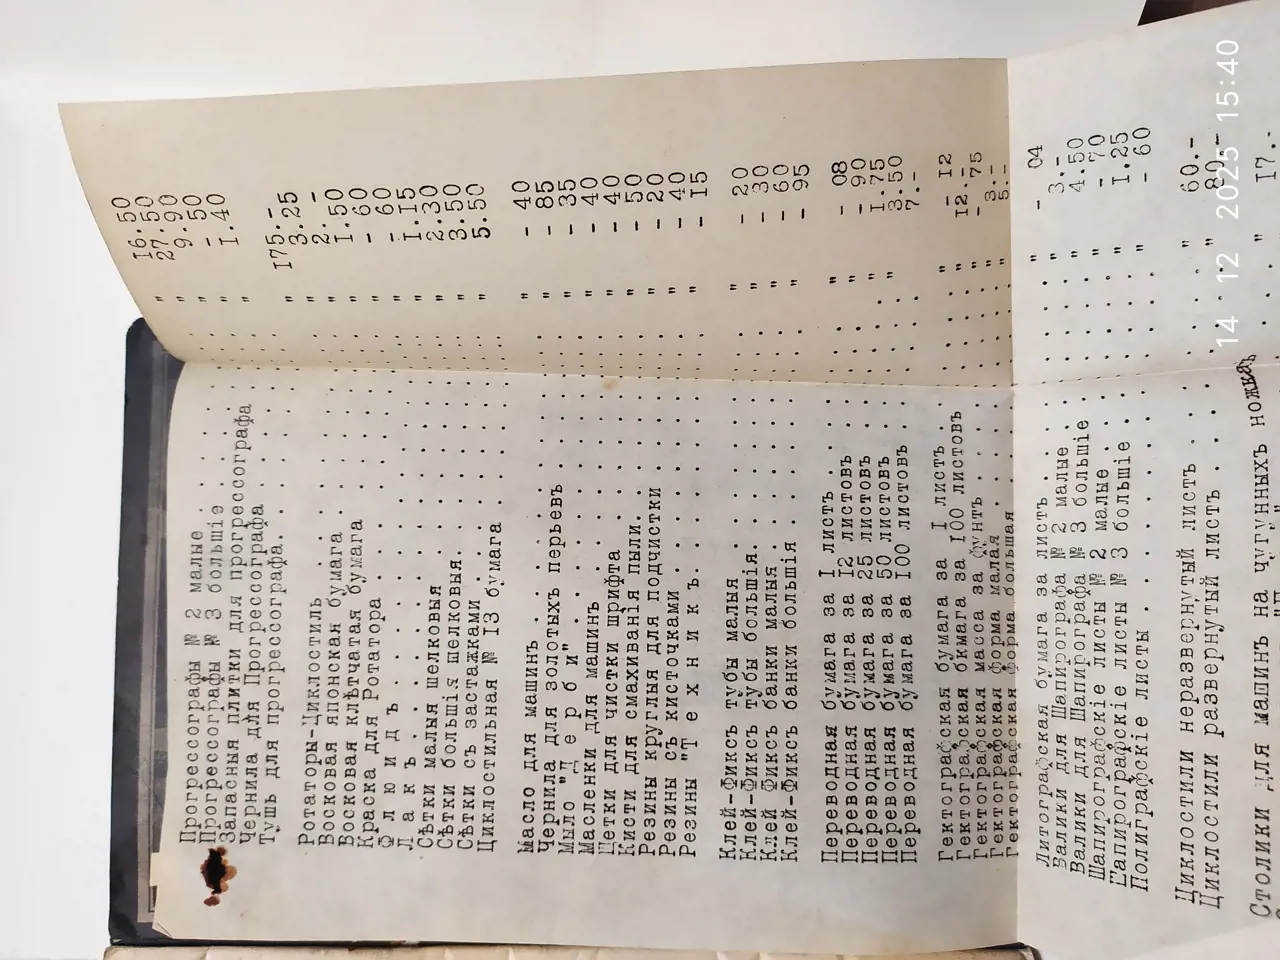 Прогрессографы № 2 малые . . . . . " 16.50
Прогрессографы № 3 большіе . . . . " 27.50
Запасныя плитки для прогрессографа " 9.90
Чернила для Прогрессографа . . . . " -.50
Тушь для прогрессографа. . . . . . " 1.40
Ротаторы-Циклостиль . . . . . . . " 175.-
Восковая японская бумага . . . . . " 3.25
Восковая клѣтчатая бумага . . . . " 2.-
Краска для Ротатора . . . . . . . " 1.50
Ф л ю и д ъ . . . . . . . . . . . " - 60
Л а к ъ . . . . . . . . . . . . . " - 60
Сѣтки малыя шелковыя . . . . . . . " 1.15
Сѣтки большія шелковыя. . . . . . " 2.30
Сѣтки съ застажками . . . . . . . " 3.50
Циклостильная № 13 бумага . . . . " 5.50
Масло для машинъ . . . . . . . . . " - 40
Чернила для золотыхъ перьевъ . . . " - 85
Мыло "Д е р б и" . . . . . . . . . " - 35
Масленки для машинъ . . . . . . . " - 40
Щетки для чистки шрифта . . . . . " - 40
Кисти для смахиванія пыли. . . . . " - 50
Резины круглыя для подчистки . . . " - 20
Резины съ кисточками . . . . . . . " - 40
Резины "Т е х н и к ъ. . . . . . . " - 15
Клей-Фиксъ тубы малыя . . . . . . " - 20
Клей-Фиксъ тубы большія. . . . . . " - 30
Клей Фиксъ банки малыя . . . . . . " - 60
Клей-Фиксъ банки большія . . . . . " - 95
Переводная бумага за 1 листъ . . . " - 08
Переводная бумага за 12 листовъ . . " - 90
Переводная бумага за 25 листовъ . . " 1.75
Переводная бумага за 50 листовъ . . " 3.50
Переводная бумага за 100 листовъ . . 7.-
Гектографская бумага за 1 листъ . . " - 12
Гектографская бкмага за 100 листовъ " 12.-
Гектографская масса за фунтъ . . . " - 75
Гектографская форма малая . . . . " 3.-
Гектографская форма большая . . . " 5.-
Литографская бумага за листъ . . . " - 04
Валики для Шапирографа № 2 малые . " 3.-
Валики для Шапирографа № 3 большіе " 4.50
Шапирографскіе листы № 2 малые . . " - 70
Шапирографскіе листы № 3 большіе . " 1.25
Полиграфскіе листы . . . . . . . . " - 60
Циклостили неразвернутый листъ . . " 60.-
Циклостили развернутый листъ . . . " 80.-
Столики для машинъ на чугунныхъ ножкахъ " 17.-
14 12 2025 15:40